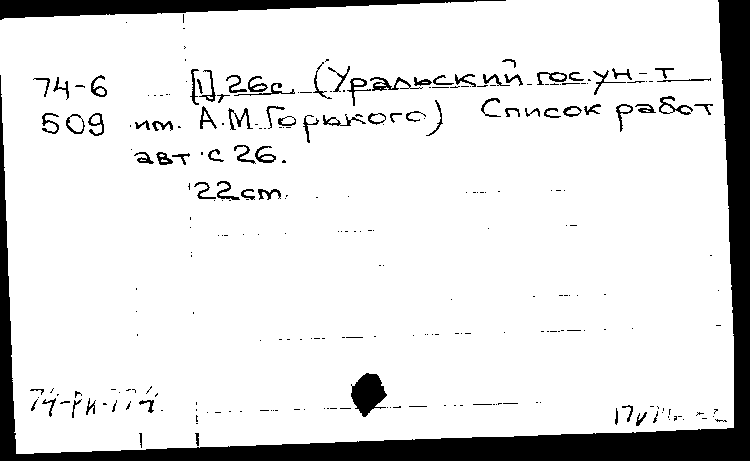 74-6 [1], 26с. (Уральский гос. ун-т
509 им. А.М. Горького) Список работ
авт. с 26.
22cm.
74-РК-774.